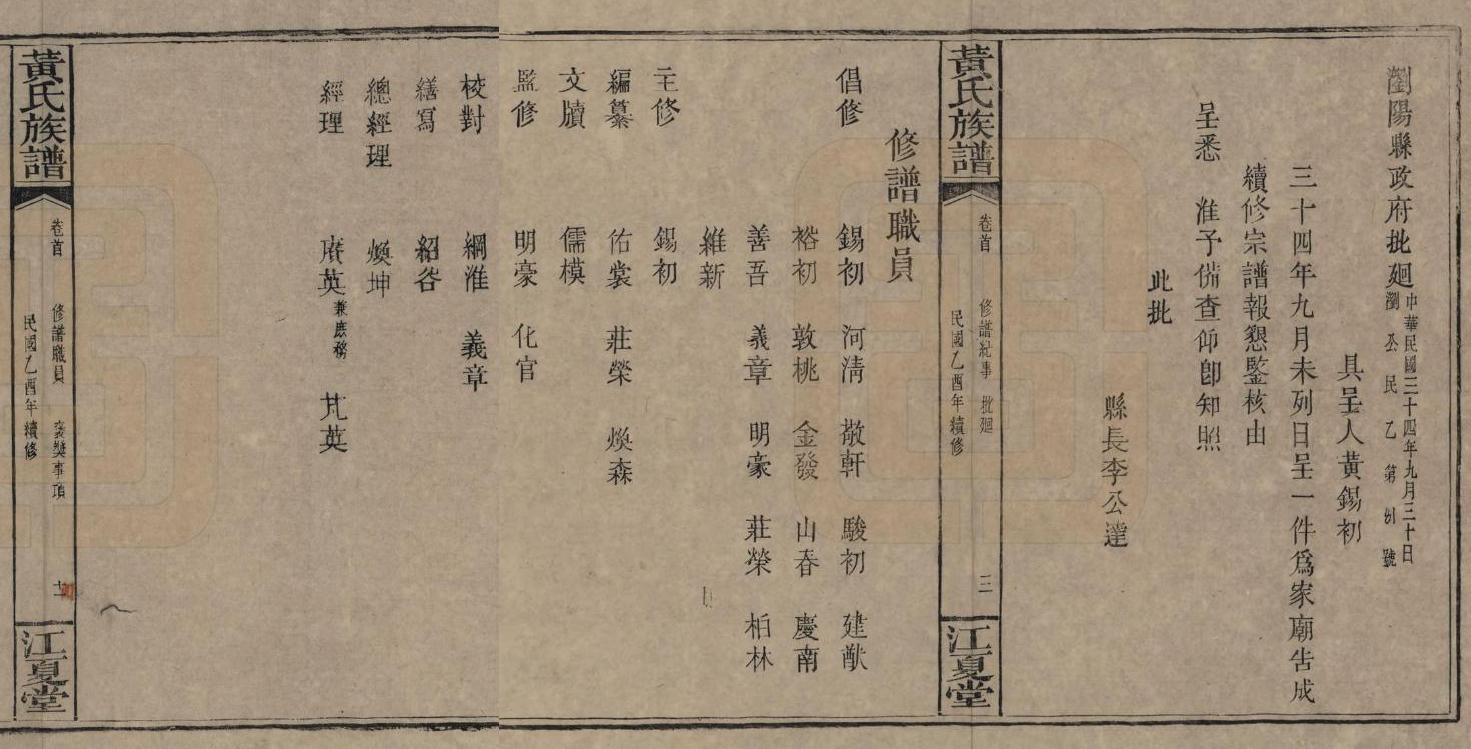 瀏陽縣政府批廻
中華民國三十四年九月三十日
瀏公民乙第列號
具呈人黃錫初
三十四年九月未列日呈一件爲家廟告成
續修宗譜報懇鑒核由
呈悉 准予備查仰卽知照
此批
縣長李公達
黃氏族譜
卷首 修譜紀事 批廻
三
民國乙酉年續修
江夏堂
修譜職員
倡修 錫初 河清 敬軒 駿初 建猷
裕初 敦桃 金發 山春 慶南
善吾 義章 明豪 莊榮 柏林
維新
主修 錫初
編纂 佑裳 莊榮 煥森
文牘 儒模
監修 明豪 化官
校對 綱淮 義章
繕寫 紹谷
總經理 煥坤
經理 賡英 兼庶務 芃英
黃氏族譜
卷首 修譜職員 獎事項
民國乙酉年續修
江夏堂